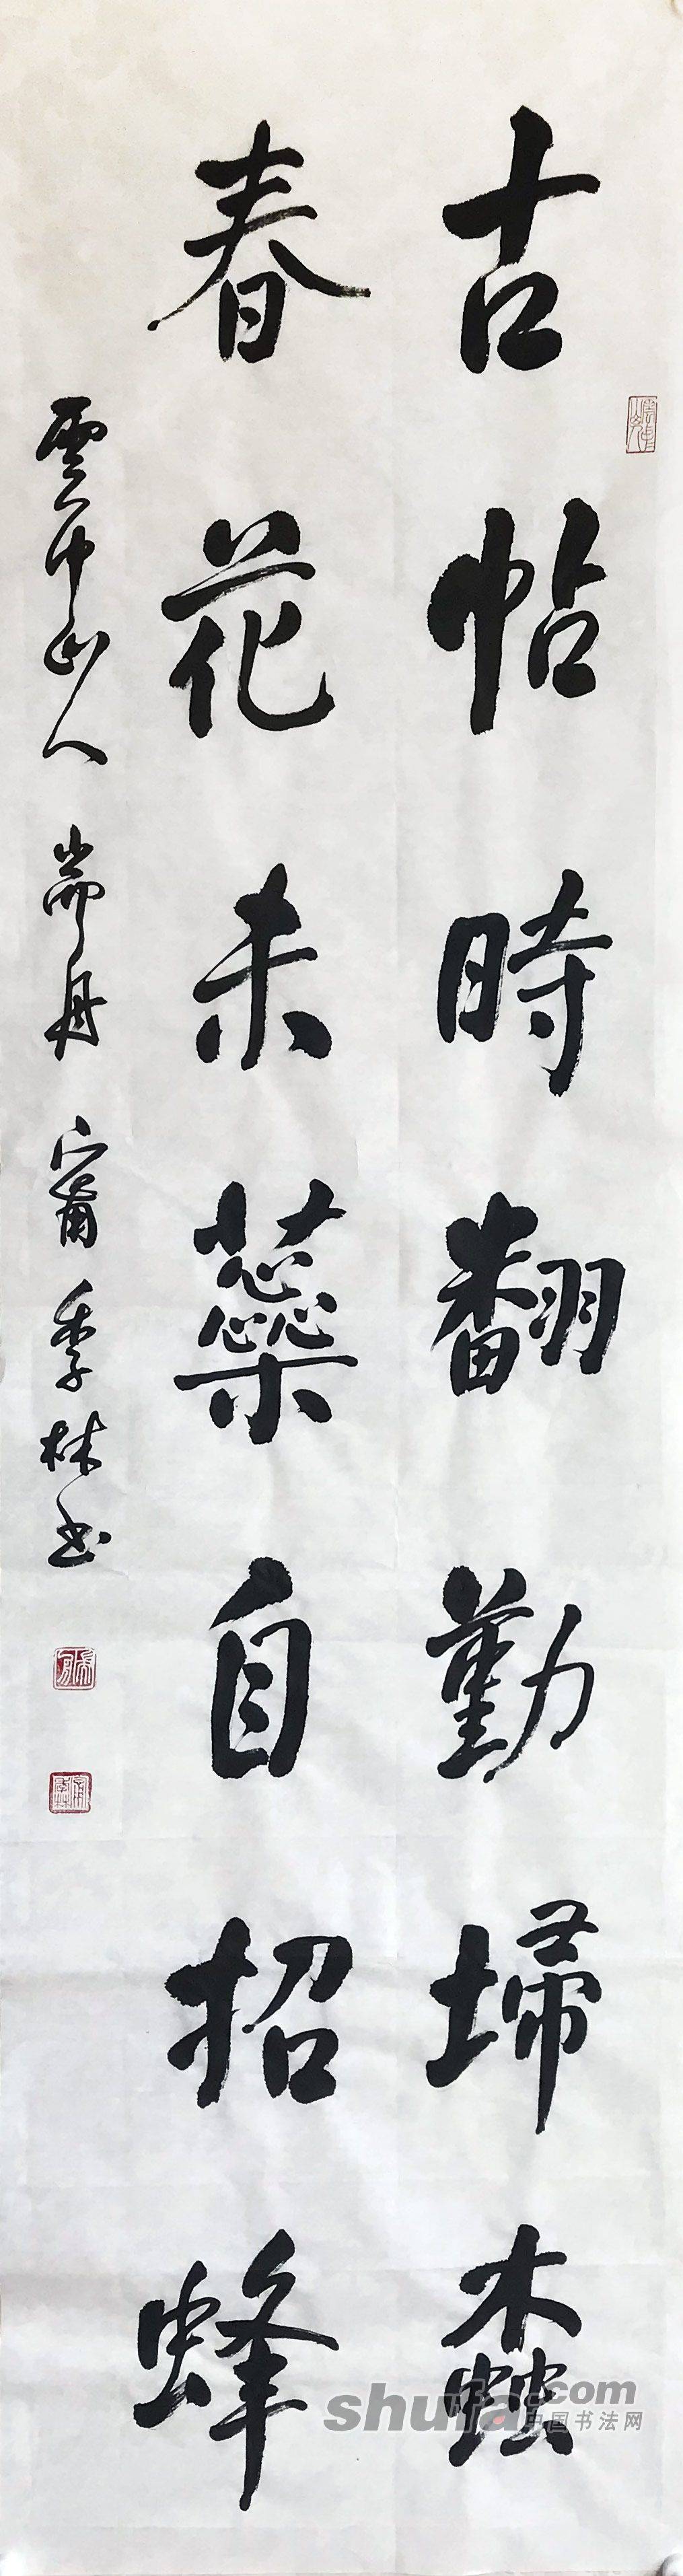 古帖時翻勤埽螙
春花未蘂自招蜂
雲中山人 耑丹 甯季林書
shufa.com
中国书法网